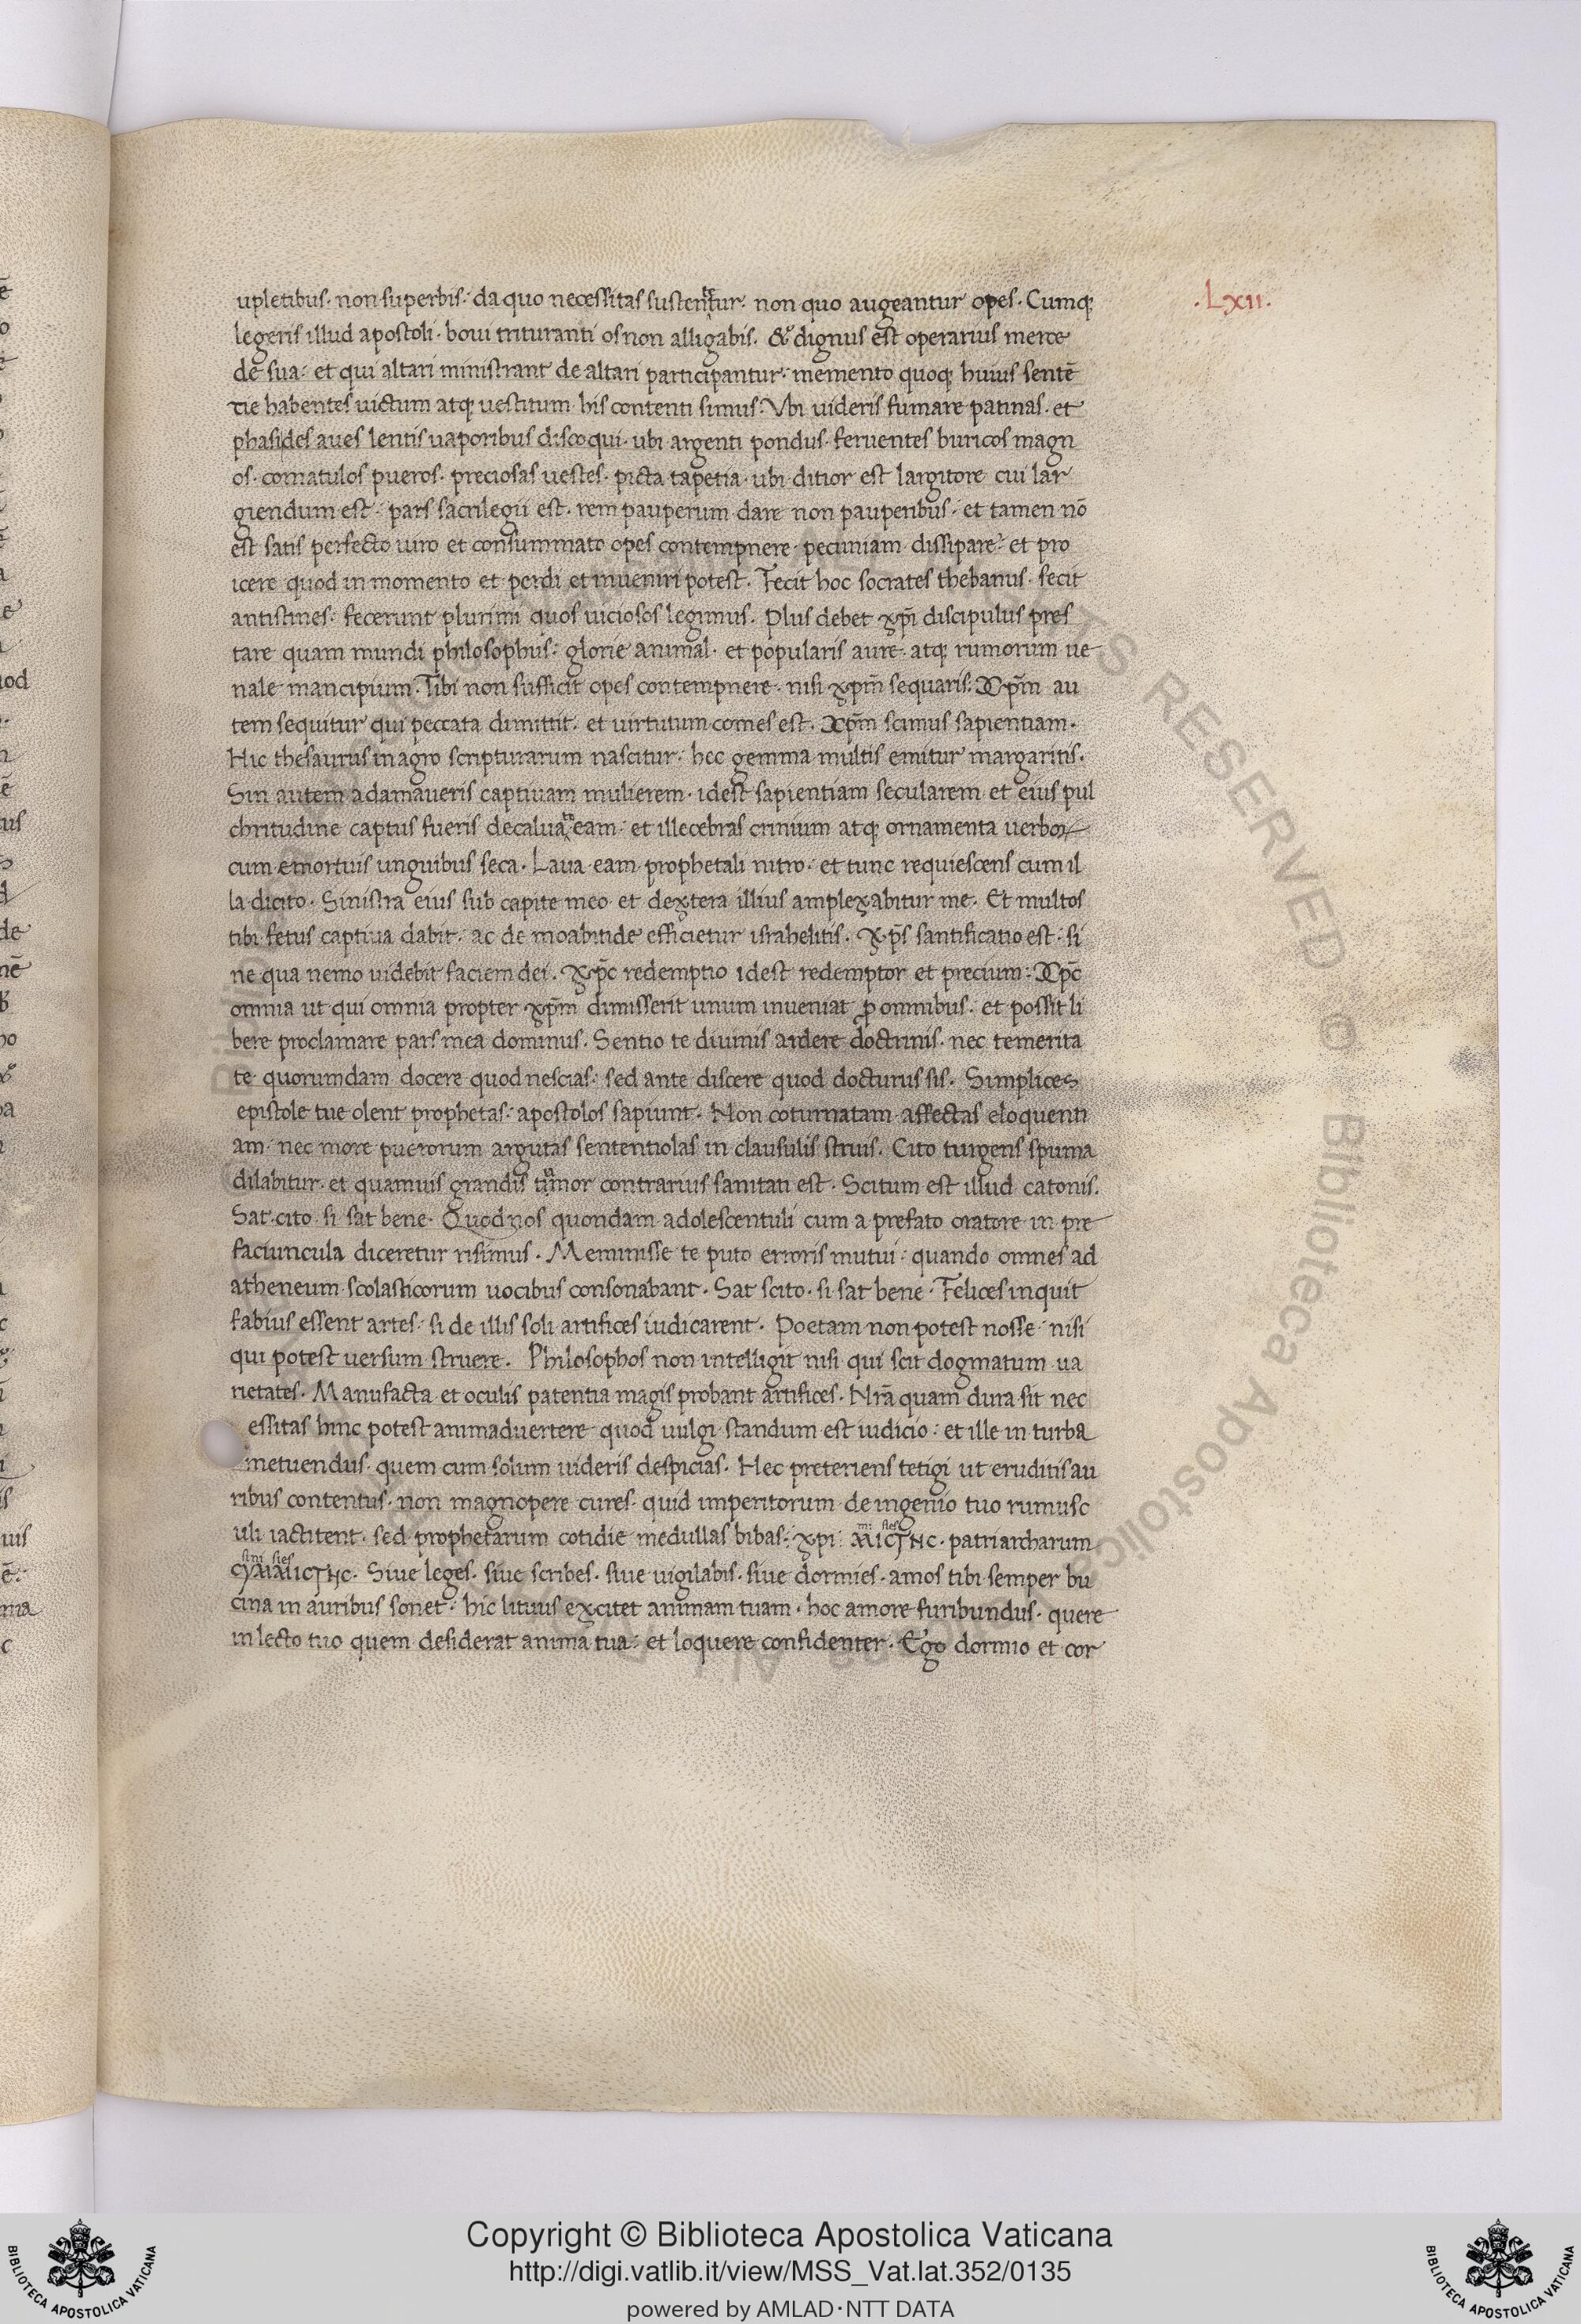 upletibus· non superbis· da quo necessitas sustentetur· non quo augeantur opes· Cumq;
.Lxii.
legeris illud apostoli· boui trituranti os non alligabis· & dignus est operarius merce
de sua· et qui altari ministrant de altari participantur· memento quoq; huius sentē
tie habentes uictum atq; uestitum his contenti simus· Vbi uideris fumare patinas· et
phasides aues lentis uaporibus discoqui· ubi argenti pondus· feruentes buricos magn
os· comatulos pueros· preciosas uestes· picta tapetia· ubi ditior est largitore cui lar
giendum est· pars sacrilegii est· rem pauperum dare non pauperibus· et tamen nō
est satis perfecto uiro et consummato opes contempnere· pecuniam dissipare· et pro
icere quod in momento et perdi et inueniri potest· Fecit hoc socrates thebanus· fecit
antistines· fecerunt plurimi quos uiciosos legimus· Plus debet xp̄i discipulus pres
tare quam mundi philosophus· glorie animal· et popularis aure· atq; rumorum ue
nale mancipium· Tibi non sufficit opes contempnere· nisi xp̄m sequaris· Xp̄m au
tem sequitur qui peccata dimittit· et uirtutum comes est· Xp̄m scimus sapientiam·
Hic thesaurus in agro scripturarum nascitur· hec gemma multis emitur margaritis·
Sin autem adamaueris captiuam mulierem· idest sapientiam secularem et eius pul
chritudine captus fueris decalua eam· et illecebras crinium atq; ornamenta uerboꝝ
cum emortuis unguibus seca· Laua eam prophetali nitro· et tunc requiescens cum il
la dicito· Sinistra eius sub capite meo et dextera illius amplexabitur me· Et multos
tibi fetus captiua dabit· ac de moabitide efficietur israhelitis· Xp̄s santificatio est· si
ne qua nemo uidebit faciem dei· Xp̄c redemptio idest redemptor et precium· Xp̄c
omnia ut qui omnia propter xp̄m dimisserit unum inueniat ꝓ omnibus· et possit li
bere proclamare pars mea dominus· Sentio te diuinis ardere doctrinis· nec temerita
te quorumdam docere quod nescias· sed ante discere quod docturus sis· Simplices
epistole tue olent prophetas· apostolos sapiunt· Non coturnatam affectas eloquenti
am· nec more puerorum argutas sententiolas in clausulis struis· Cito turgens spuma
dilabitur· et quamuis grandis tumor contrarius sanitati est· Scitum est illud catonis·
Sat cito si sat bene· Quod nos quondam adolescentuli cum a prefato oratore in pre
faciuncula diceretur risimus· Meminisse te puto erroris mutui· quando omnes ad
atheneum scolasticorum uocibus consonabant· Sat scito· si sat bene· Felices inquit
fabius essent artes· si de illis soli artifices iudicarent· Poetam non potest nosse· nisi
qui potest uersum struere· Philosophos non intelligit nisi qui scit dogmatum ua
rietates· Manufacta et oculis patentia magis probant artifices· Nr̄a quam dura sit nec
essitas hinc potest animaduertere quod uulgi standum est iudicio· et ille in turba
metuendus· quem cum solum uideris despicias· Hec preteriens tetigi ut eruditis au
ribus contentus· non magnopere cures· quid imperitorum de ingenio tuo rumusc
uli iactitent· sed prophetarum cotidie medullas bibas· xpi· patriarcharum
Siue leges· siue scribes· siue uigilabis· siue dormies· amos tibi semper bu
cina in auribus sonet· hic lituus excitet animam tuam· hoc amore furibundus· quere
in lecto tuo quem desiderat anima tua· et loquere confidenter· Ego dormio et cor
Copyright © Biblioteca Apostolica Vaticana
http://digi.vatlib.it/view/MSS_Vat.lat.352/0135
powered by AMLAD·NTT DATA
BIBLIOTECA APOSTOLICA VATICANA
BIBLIOTECA APOSTOLICA VATICANA